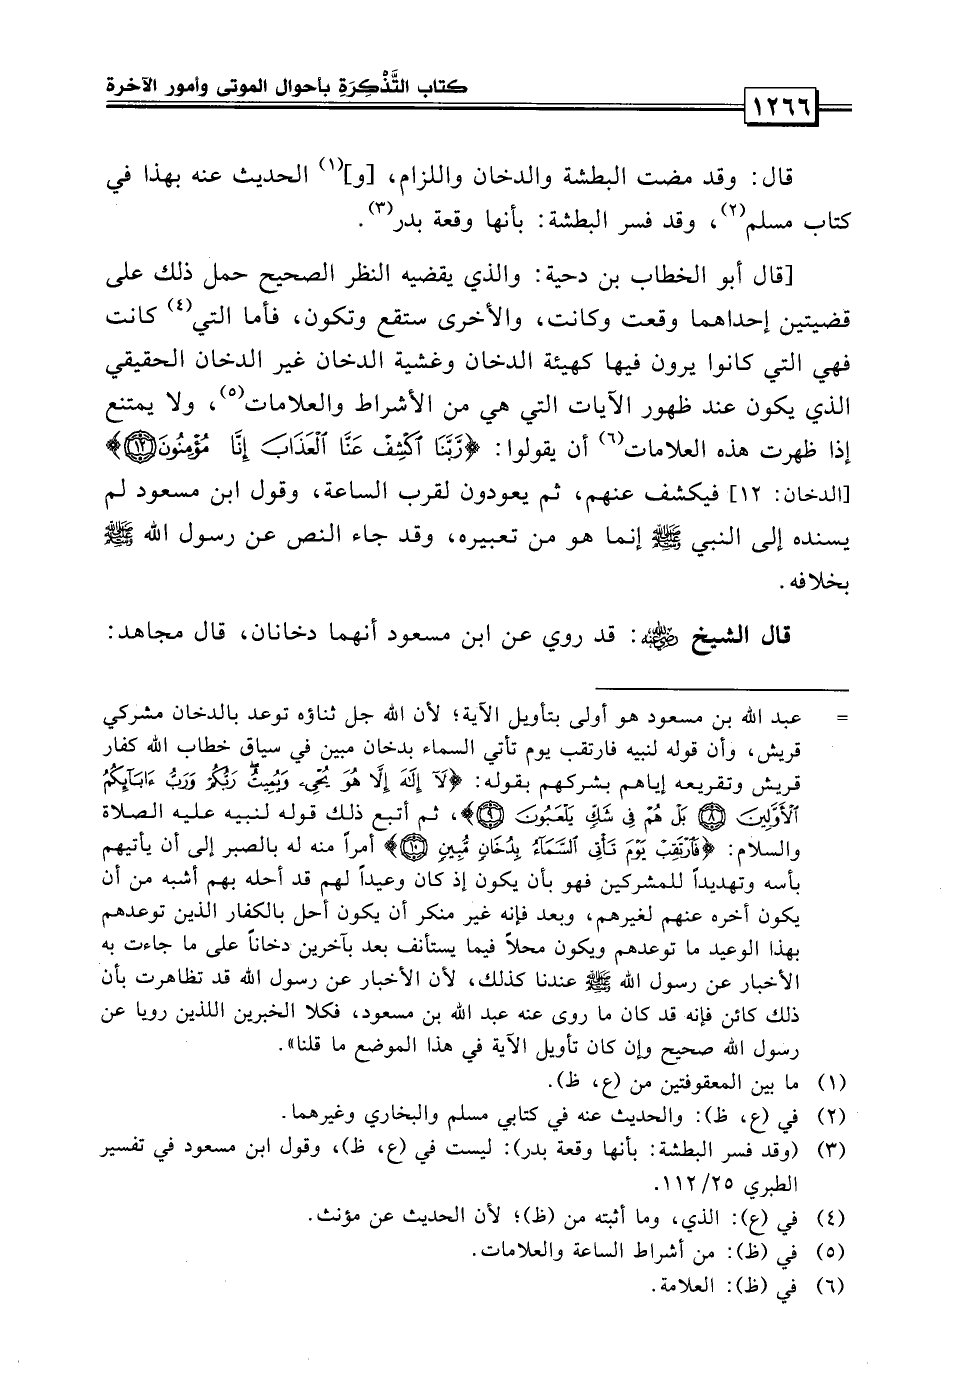 كتاب التَّذْكِرَةِ بأحوال الموتى وأمور الآخرة
١٢٦٦
قال: وقد مضت البطشة والدخان واللزام، [و](١) الحديث عنه بهذا في
كتاب مسلم(٢)، وقد فسر البطشة: بأنها وقعة بدر(٣).
[قال أبو الخطاب بن دحية: والذي يقضيه النظر الصحيح حمل ذلك على
قضيتين إحداهما وقعت وكانت، والأخرى ستقع وتكون، فأما التي(٤) كانت
فهي التي كانوا يرون فيها كهيئة الدخان وغشية الدخان غير الدخان الحقيقي
الذي يكون عند ظهور الآيات التي هي من الأشراط والعلامات(٥)، ولا يمتنع
إذا ظهرت هذه العلامات(٦) أن يقولوا: ﴿رَّبَّنَا ٱكْشِفْ عَنَّا ٱلْعَذَابَ إِنَّا مُؤْمِنُونَ ١٢﴾
[الدخان: ١٢] فيكشف عنهم، ثم يعودون لقرب الساعة، وقول ابن مسعود لم
يسنده إلى النبي ﷺ إنما هو من تعبيره، وقد جاء النص عن رسول الله ﷺ
بخلافه.
قال الشيخ رضي الله عنه: قد روي عن ابن مسعود أنهما دخانان، قال مجاهد:
= عبد الله بن مسعود هو أولى بتأويل الآية؛ لأن الله جل ثناؤه توعد بالدخان مشركي
قريش، وأن قوله لنبيه فارتقب يوم تأتي السماء بدخان مبين في سياق خطاب الله كفار
قريش وتقريعه إياهم بشركهم بقوله: ﴿لَآ إِلَٰهَ إِلَّا هُوَ يُحْيِۦ وَيُمِيتُ ۖ رَبُّكُمْ وَرَبُّ ءَابَآئِكُمُ
ٱلْأَوَّلِينَ ٨ بَلْ هُمْ فِى شَكٍّ يَلْعَبُونَ ٩﴾، ثم أتبع ذلك قوله لنبيه عليه الصلاة
والسلام: ﴿فَٱرْتَقِبْ يَوْمَ تَأْتِى ٱلسَّمَآءُ بِدُخَانٍ مُّبِينٍ ١٠﴾ أمراً منه له بالصبر إلى أن يأتيهم
بأسه وتهديداً للمشركين فهو بأن يكون إذ كان وعيداً لهم قد أحله بهم أشبه من أن
يكون أخره عنهم لغيرهم، وبعد فإنه غير منكر أن يكون أحل بالكفار الذين توعدهم
بهذا الوعيد ما توعدهم ويكون محلاً فيما يستأنف بعد بآخرين دخاناً على ما جاءت به
الأخبار عن رسول الله ﷺ عندنا كذلك، لأن الأخبار عن رسول الله قد تظاهرت بأن
ذلك كائن فإنه قد كان ما روى عنه عبد الله بن مسعود، فكلا الخبرين اللذين رويا عن
رسول الله صحيح وإن كان تأويل الآية في هذا الموضع ما قلنا».
(١) ما بين المعقوفتين من (ع، ظ).
(٢) في (ع، ظ): والحديث عنه في كتابي مسلم والبخاري وغيرهما.
(٣) (وقد فسر البطشة: بأنها وقعة بدر): ليست في (ع، ظ)، وقول ابن مسعود في تفسير
الطبري ١١٢/٢٥.
(٤) في (ع): الذي، وما أثبته من (ظ)؛ لأن الحديث عن مؤنث.
(٥) في (ظ): من أشراط الساعة والعلامات.
(٦) في (ظ): العلامة.